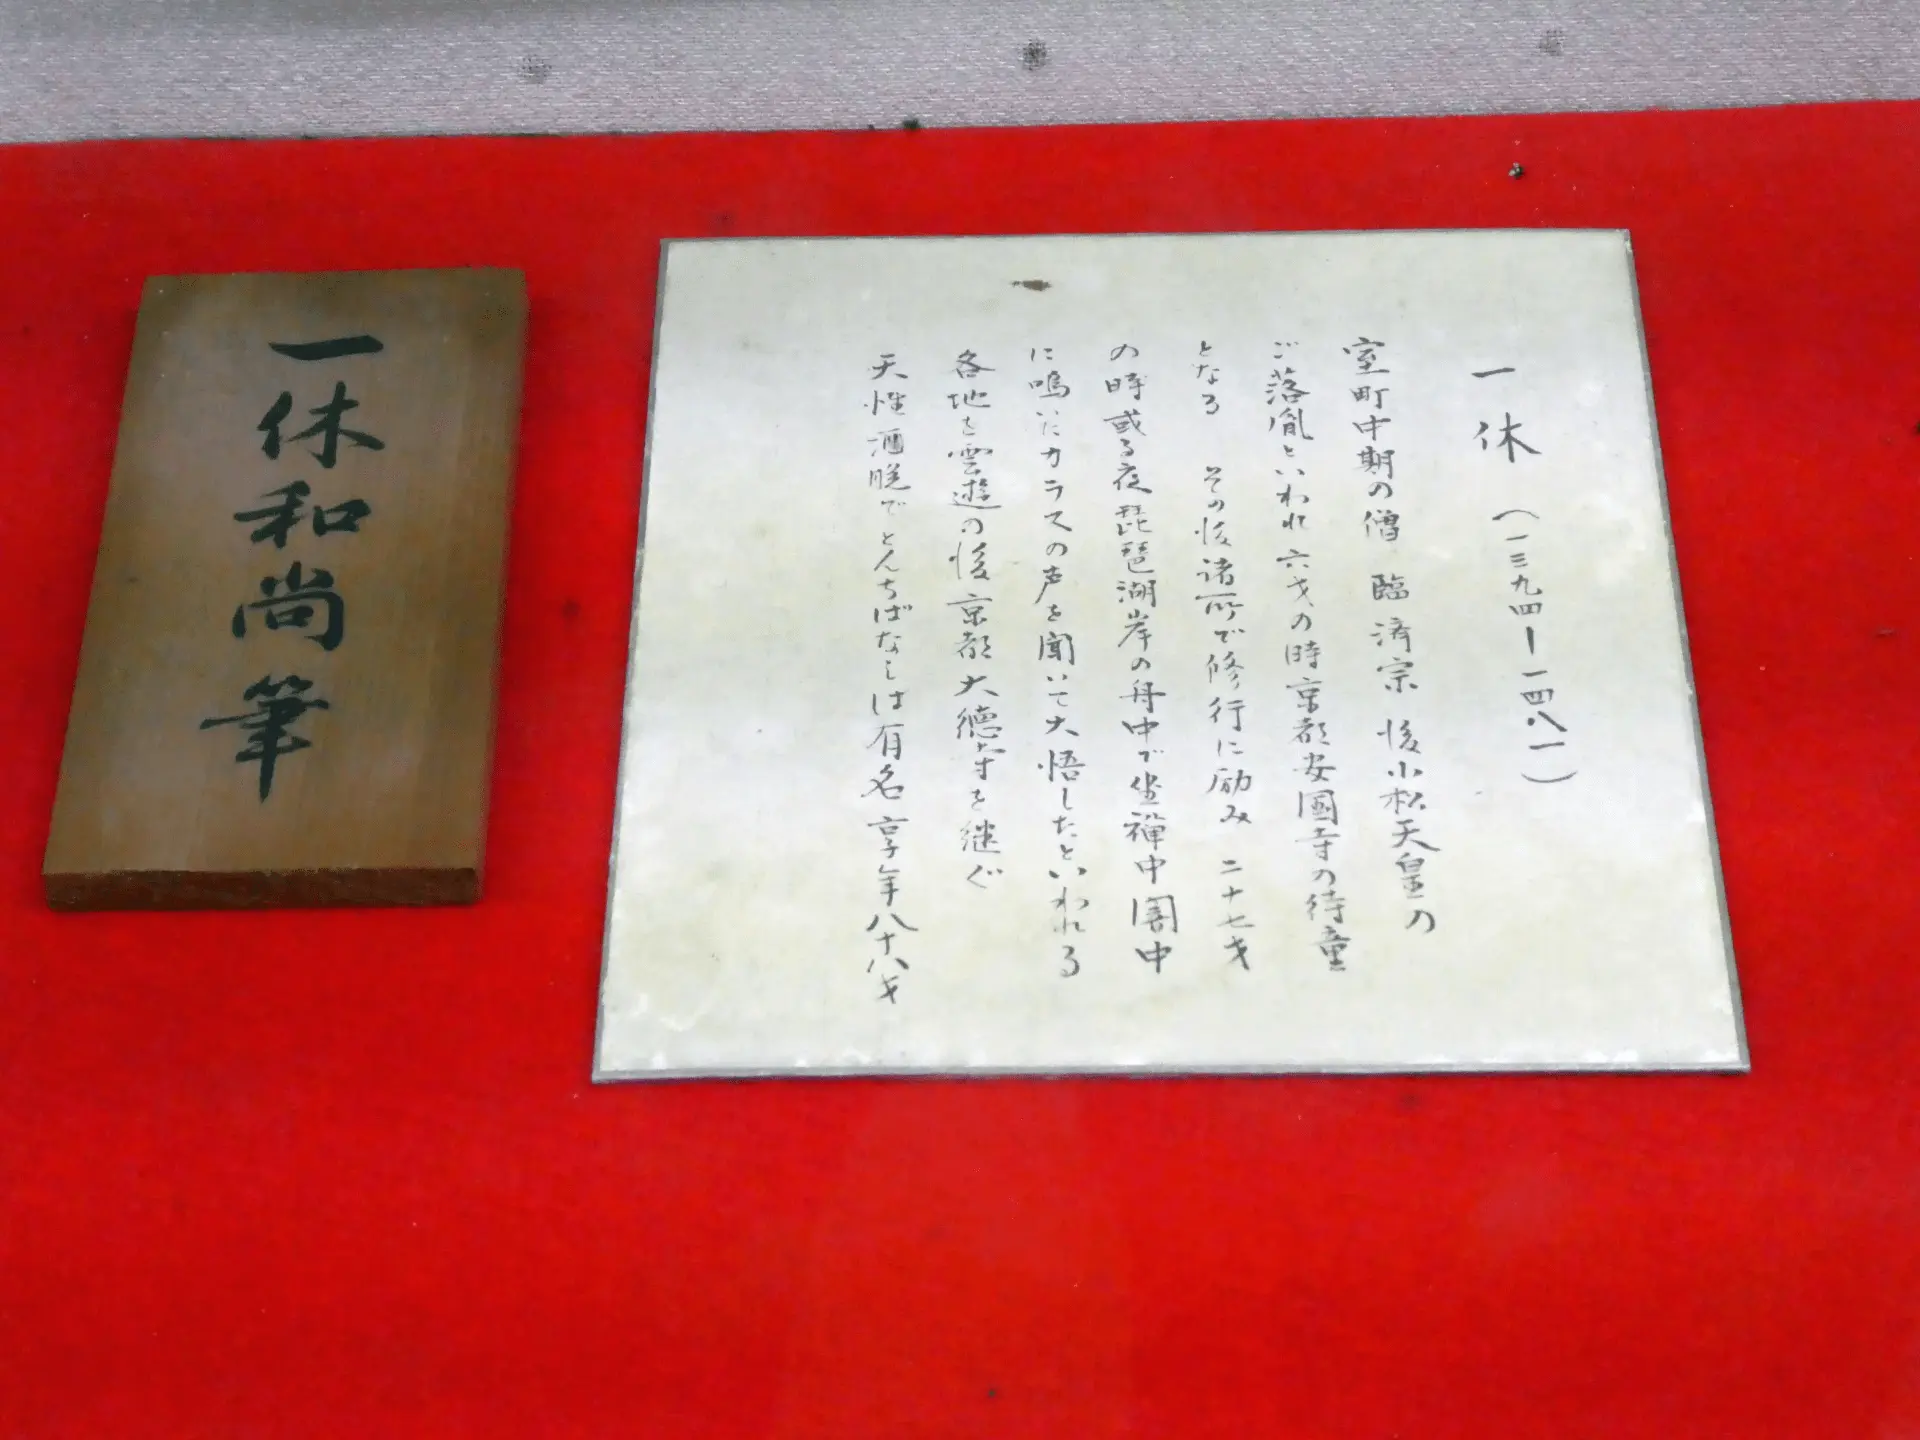 一休（一三九四ー一四八一）
室町中期の僧 臨済宗 後小松天皇の
ご落胤といわれ 六才の時京都安國寺の待童
となる その後諸所で修行に励み 二十七才
の時或る夜琵琶湖岸の舟中で坐禅中闇中
に鳴いたカラスの声を聞いて大悟したといわれる
各地を雲遊の後京都大德寺を継ぐ
天性洒脱でとんちばなしは有名 享年八十八才
一休和尚筆